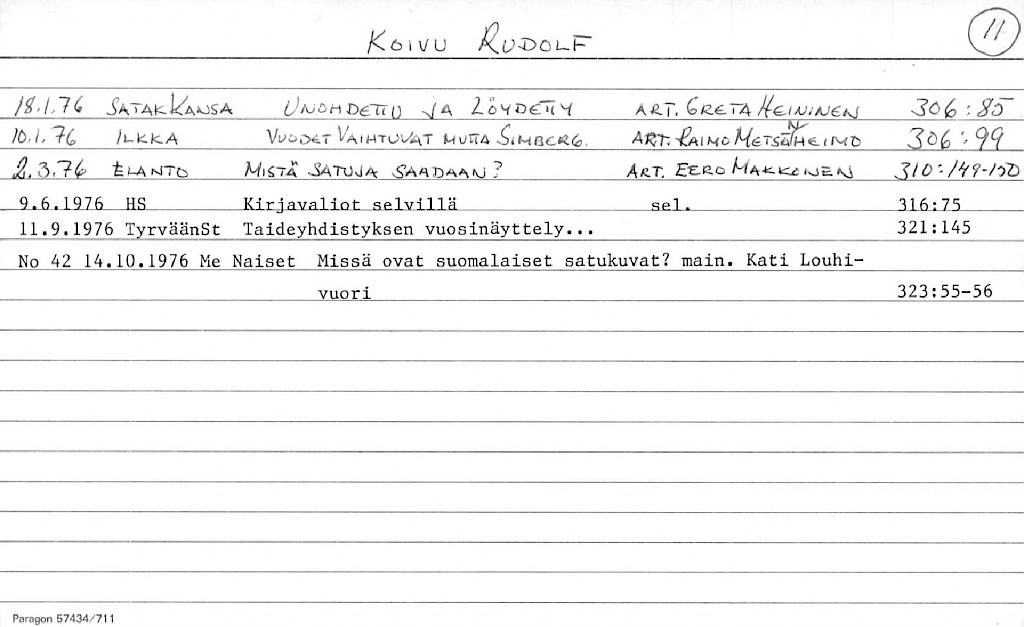 KOIVU RUDOLF 11
18.1.76 SATAKKANSA UNOHDETTU JA LÖYDETTY ART. GRETA HEININEN 306:85
10.1.76 ILKKA VUODET VAIHTUVAT MUTTA SIMBERG. ART. RAIMO METSÄNHEIMO 306:99
2.3.76 ELANTO MISTÄ SATUJA SAADAAN? ART. EERO MAKKONEN 310:149-150
9.6.1976 HS Kirjavaliot selvillä sel. 316:75
11.9.1976 TyrväänSt Taideyhdistyksen vuosinäyttely... 321:145
No 42 14.10.1976 Me Naiset Missä ovat suomalaiset satukuvat? main. Kati Louhi-
vuori 323:55-56
Paragon 57434/711